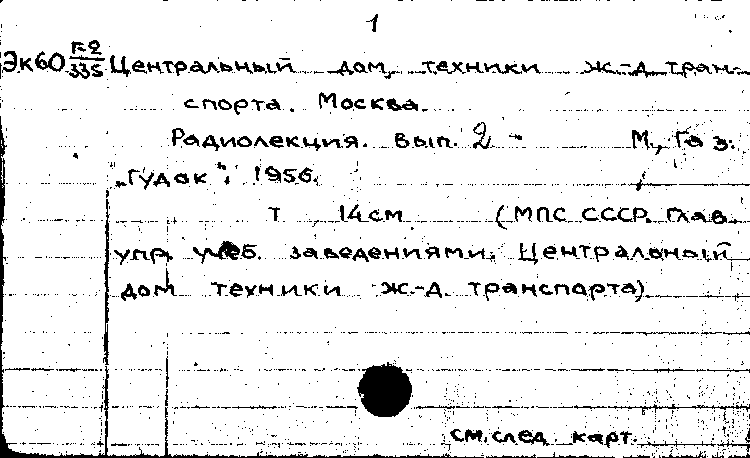 1
Эк60 Г-2/335 Центральный дом техники ж-д тран-
спорта. Москва.
Радиолекция. Вып. 2 - М., Газ.
„Гудок". 1956.
т 14 см (МПС СССР. Глав.
упр. учеб. заведениями. Центральный
дом техники ж-д. транспорта)
см. след. карт.